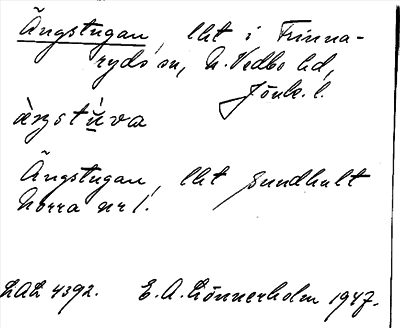 Ängstugan, lht i Finna-
ryds sn, N. Vedbo hd,
Jönk. l.
Ängstugan, lht Sundhult
Norra nr 1.
LAL 4392. E. A. Lönnerholm 1947.